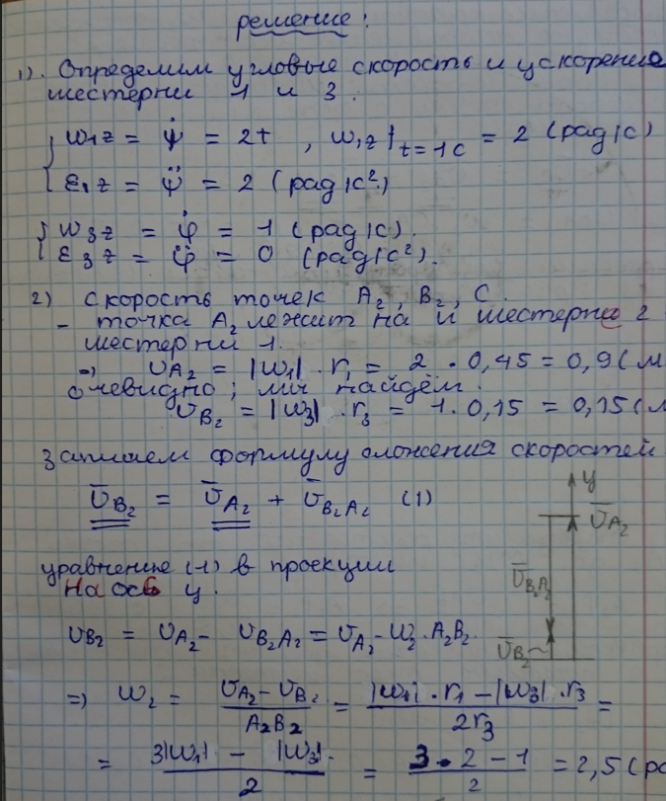 решение:
1). Определим угловые скорость и ускорение
шестерни 1 и 3.
ω₁z = ψ̇ = 2t , ω₁z|t=1c = 2 (рад/с)
ε₁z = ψ̈ = 2 (рад/с²)
ω₃z = φ̇ = 1 (рад/с).
ε₃z = φ̈ = 0 (рад/с²).
2) скорость точек A₂, B₂, C.
- точка A₂ лежит на и шестерне 2
шестерни 1.
=> υA₂ = |ω₁| · r₁ = 2 · 0,45 = 0,9 (м
очевидно; мы найдём.
υB₂ = |ω₃| · r₃ = 1 · 0,15 = 0,15 (м
запишем формулу сложения скоростей
ῡB₂ = ῡA₂ + ῡB₂A₂ (1)
y
ῡA₂
ῡB₂A₂
ῡB₂
уравнение (1) в проекции
на ось y.
υB₂ = υA₂ - υB₂A₂ = υA₂ - ω₂ · A₂B₂.
=> ω₂ = (υA₂ - υB₂)/(A₂B₂) = (|ω₁| · r₁ - |ω₃| · r₃)/(2r₃) =
= (3|ω₁| - |ω₃|)/2 = (3 · 2 - 1)/2 = 2,5 (ра